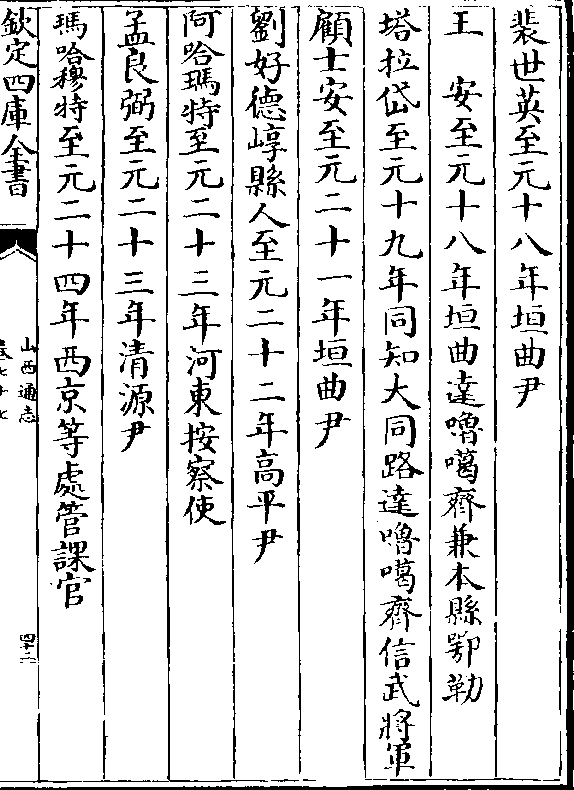 裴世英至元十八年垣曲尹
王　安至元十八年垣曲達嚕噶齊兼本縣鄂勒
塔拉岱至元十九年同知大同路達嚕噶齊信武將軍
顧士安至元二十一年垣曲尹
劉好德崞縣人至元二十二年高平尹
阿哈瑪特至元二十三年河東按察使
孟良弼至元二十三年清源尹
瑪哈穆特至元二十四年西京等處管課官
欽定四庫全書
山西通志
卷七十七
四十二